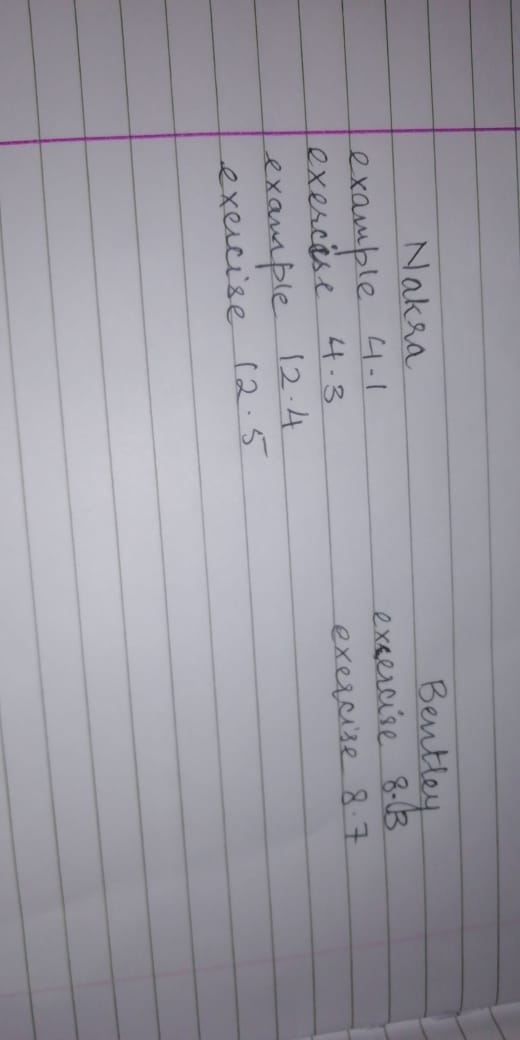 Nakra
example 4.1
exercise 4.3
example 12.4
exercise 12.5
Bentley
exercise 8.13
exercise 8.7